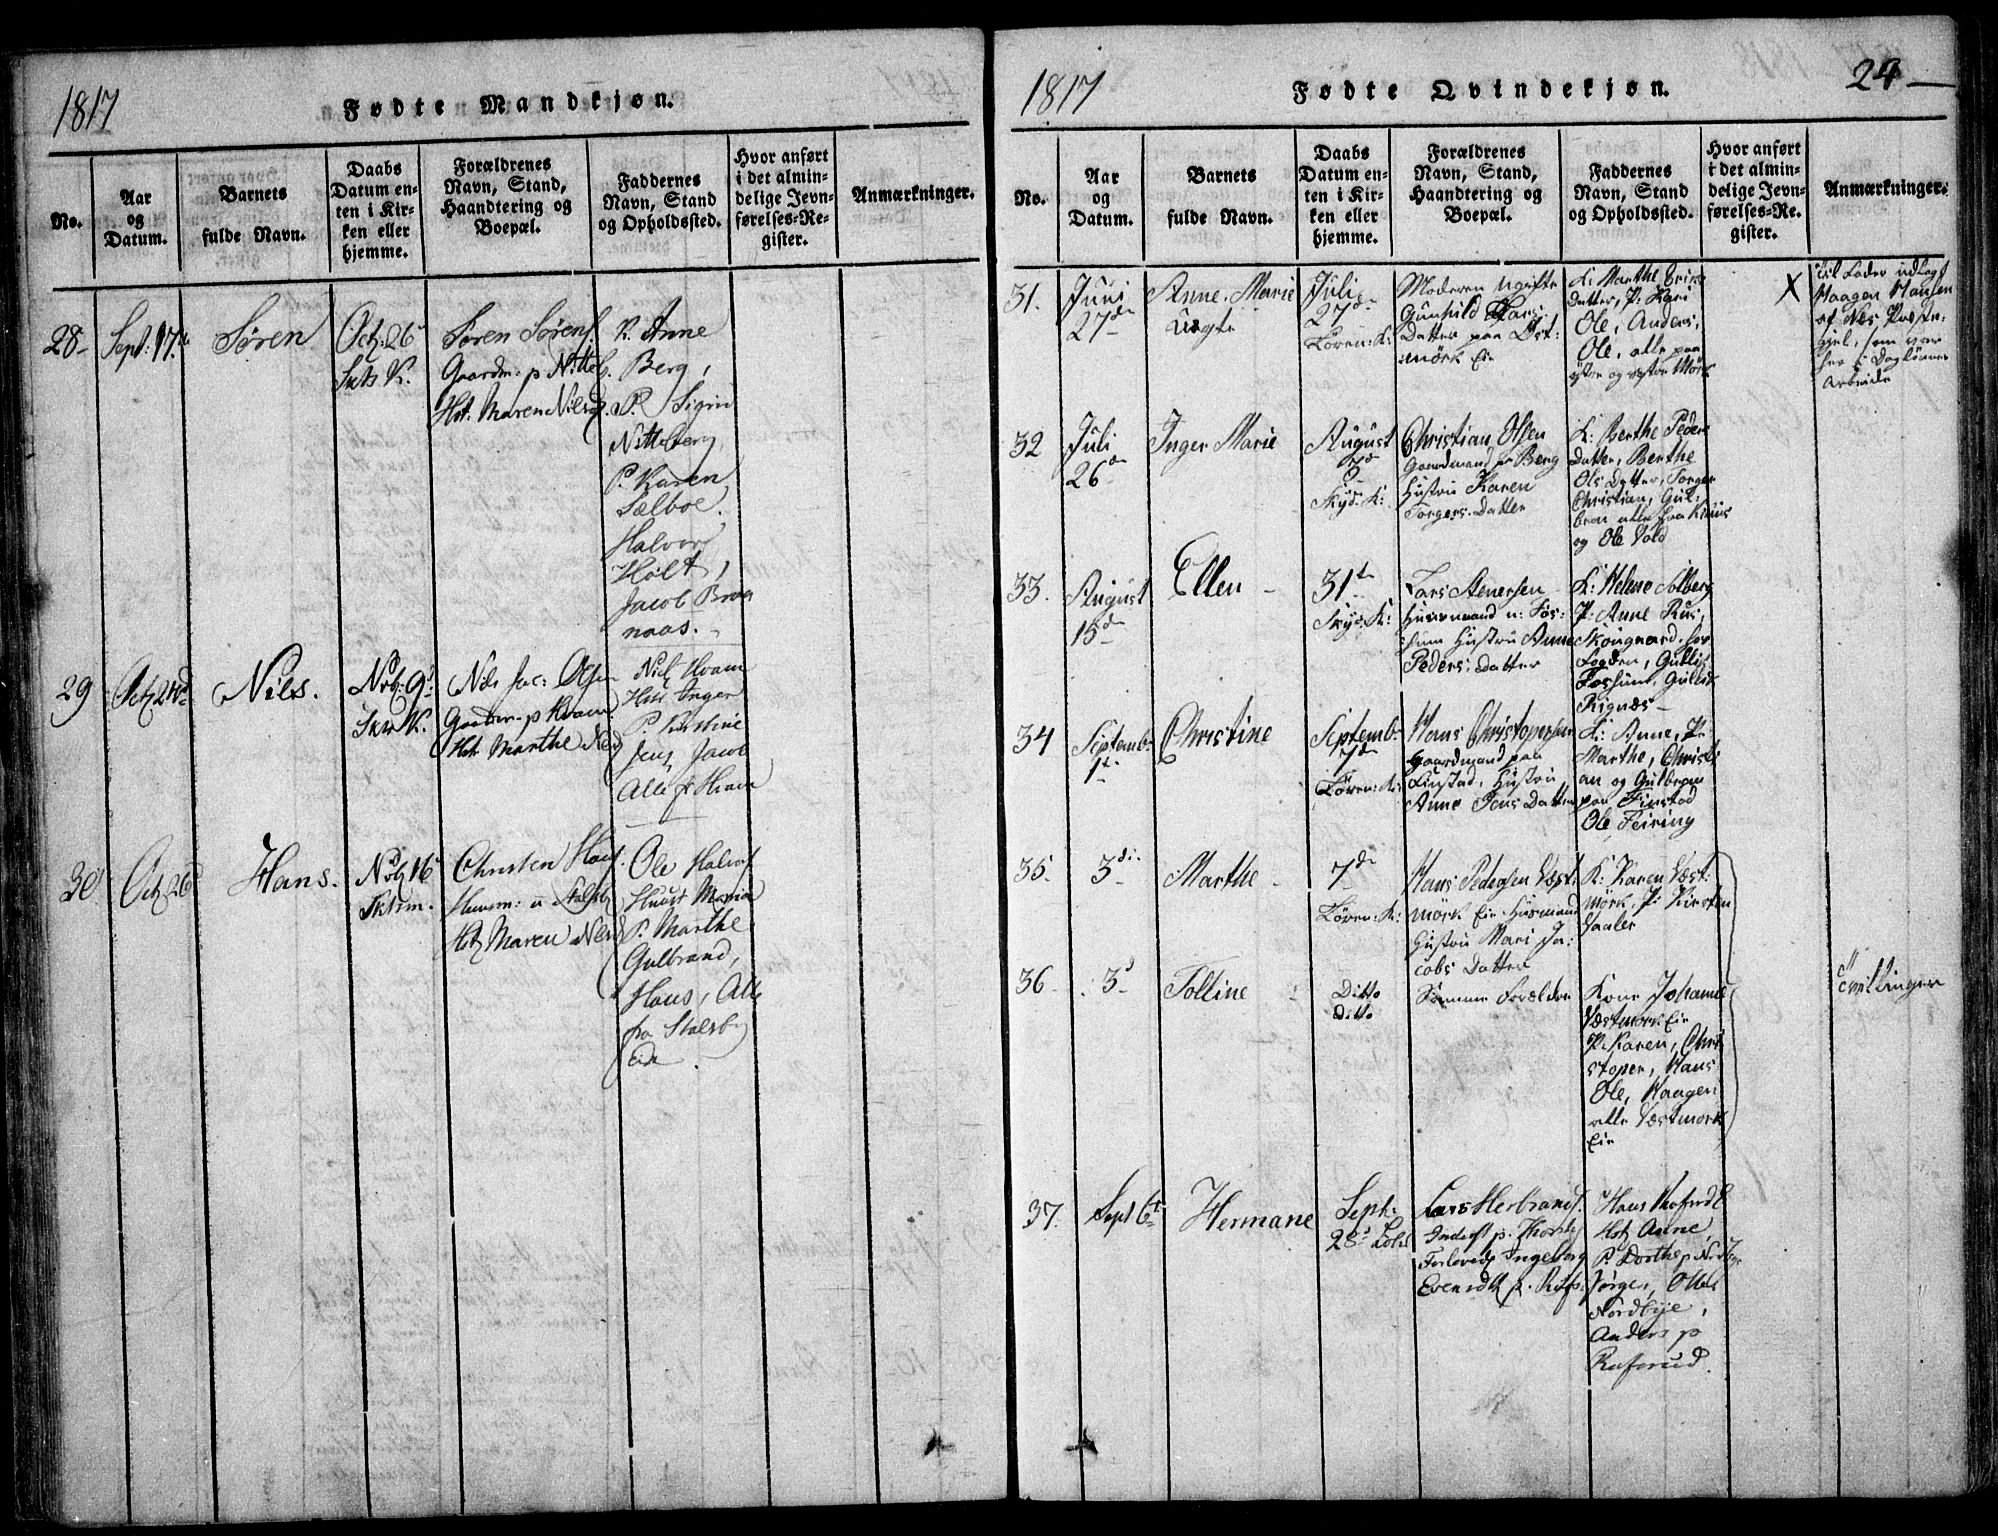 1817
Fødte Mandkjøn.
No.
Aar
og
Datum.
Barnets
fulde Navn.
Daabs
Datum en-
ten i Kir-
ken eller
hjemme.
Forældrenes
Navn, Stand,
Haandtering og
Boepæl.
Faddernes
Navn, Stand
og Opholdssted.
Hvor anført
i det almin-
delige Jevn-
førelses-Re-
gister.
Anmærkninger.
28
Sept: 17
Søren
Oct: 26
K.
Søren Sørens.
Gaardm: p Nitteb.
Maren Nilsd.
K. Anne
Berg,
P. Sigrin
Nitteberg
P. Karen
Sælboe.
Halvor
Holt,
Jacob
naas.
29
Nils.
9
K.
Nils Jac: Olsen
Gaardm p Kvam
Marthe
Niels Hvam
Inger
P. Kirstine
Jens, Jacob
Alle fr Hvam
30
Oct 26
Hans.
16
Christen
Maren
Ole
Maria
P. Marthe
Gulbrand,
Hans, Alle
fra Stalsby
Eie.
1817
Fødte Qvindekjøn.
24
No.
Aar
og
Datum.
Barnets
fulde Navn.
Daabs
Datum en-
ten i Kir-
ken eller
hjemme.
Forældrenes
Navn, Stand,
Haandtering og
Boepæl.
Faddernes
Navn, Stand
og Opholdssted.
Hvor anført
i det almin-
delige Jevn-
førelses-Re-
gister.
Anmærkninger.
31.
Juni
27de
Anne Marie
Uægte
Juli
27de
Løren: K:
Moderen ugifte
Gunhild Lars
Datter paa Øst:
mörk Eie
K: Marthe Erics
Datter, P: Kari
Ole, Anders,
Ole, alle paa
østre og vestre Mørk
X
Til Fader udlagt
Haagen Hansen
af Næs Præste:
gjel, som var
her i Daglønner
Arbeide
32
Juli
26de
Inger Marie
August
7de
Skyds: K:
Christian Olsen
Gaardmand p: Berg
Hustru Karen
Torgers: Datter
K: Berthe Peders
Datter, Berthe
Ols Datter, Torger
Christian, Gul:
bran alle fra
og Ole Vold
33.
August
15de
Ellen
31te
Skyds: K:
Lars Stenersen
Huusmand u: Fos:
sum Hustru Anne
Peders: Datter
K: Helene Solberg
P: Anne Rus,
Skougaard, for
Fogden, Gullik
Fossum, Gullik
Rignæs
34
Septembr
1te
Christine
Septembr
7de
Løren: K:
Hans Christopersen
Gaardmand paa
Finstad, Hustru
Anne Jens Datter
K: Anne, P:
Marthe, Christi
an og Gulbran
paa Finstad
Ole, Feiring
35.
3die
Marthe
7de
Løren: K:
Hans Pedersen Væst:
mörk Eie Husmand
Hustru Mari Ja:
cobs Datter
K: Karen Væst:
mörk, P: Kirsten
Vaaler
36
3d
Tolline
Ditto
ditto
Samme Forældre
Kone Johanne
Væstmørk Eie
P: Karen, Chri
stoper, Hans
Ole, Haagen
alle Væstmørk
Eie
Tvillinger
37.
Sept 6te
Hermane
Sept:
28d
Lars Herbrands.
Inderst p.
Forlovede Ingeborg
Evensdtr p.
Hans
Anne
P. Dorthe
Jørge,
Nordbye,
Anders p